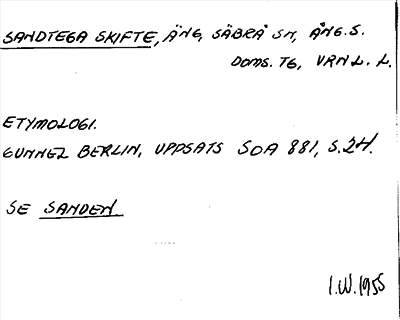 SANDTEGA SKIFTE, ÄNG, SÄBRÅ SN, ÅNG.S.
DOMS. TG, VRNL. L.
ETYMOLOGI.
GUNNEL BERLIN, UPPSATS SOA 881, S.24.
SE SANDEN
I.W.1955